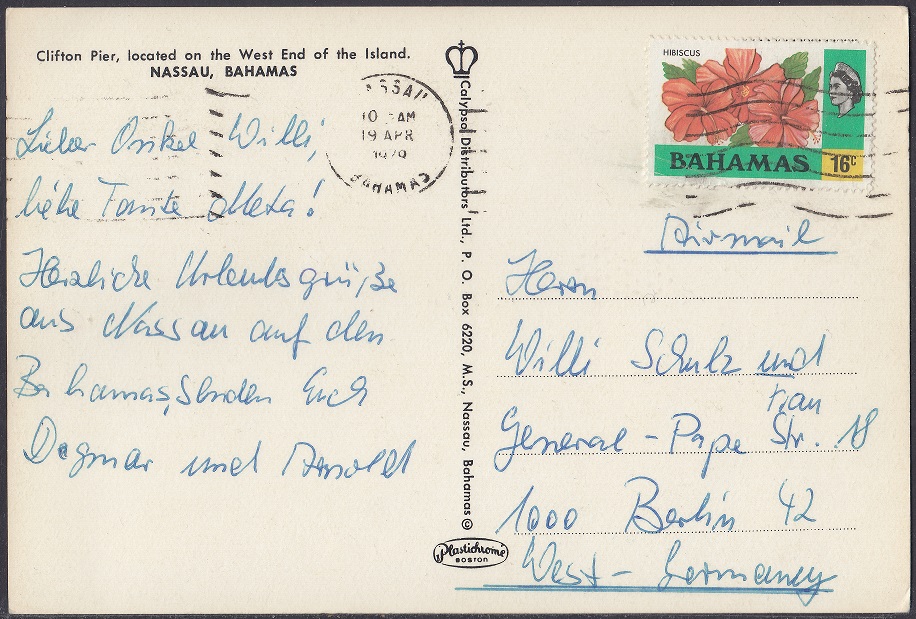 Clifton Pier, located on the West End of the Island.
NASSAU, BAHAMAS
Lieber Onkel Willi,
liebe Tante Meta!
Herzliche Urlaubsgrüße
aus Nassau auf den
Bahamas, senden Euch
Dagmar und Arnold
Calypso Distributors Ltd., P. O. Box 6220, M.S., Nassau, Bahamas ©
Plastichrome
BOSTON
NASSAU
10 AM
19 APR
1979
BAHAMAS
HIBISCUS
BAHAMAS
16c
Airmail
Herrn
Willi Schulz und
Frau
General-Pape Str. 18
1000 Berlin 42
West-Germany